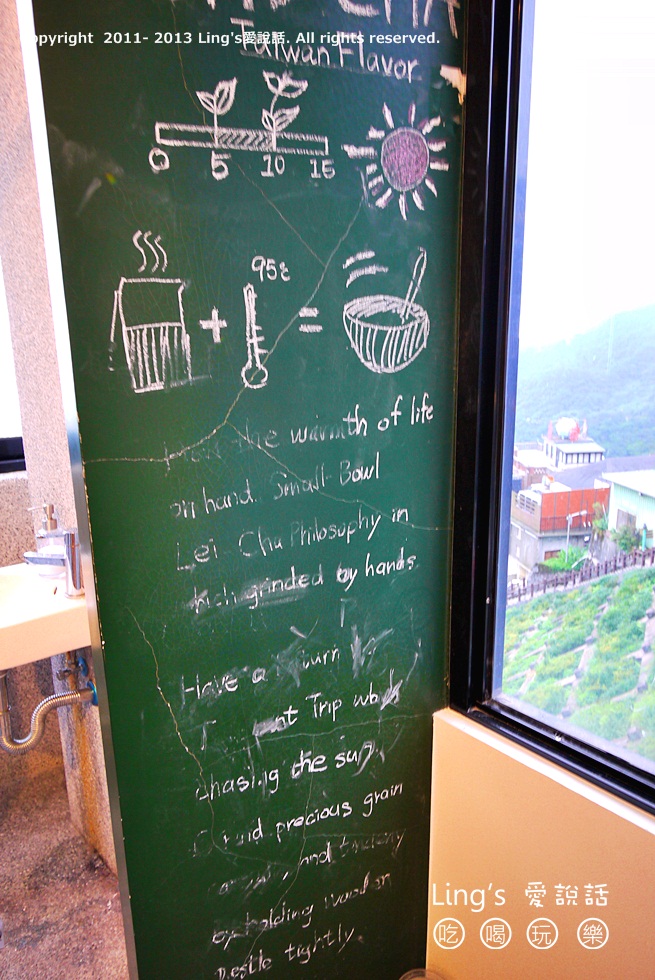 Copyright 2011- 2013 Ling's愛說話. All rights reserved.
CHA
Taiwan Flavor
0 5 10 15
95℃
+ =
the warmth of life
on hand. Small-Bowl
Lei-Cha Philosophy in
rich grinded by hands
Have a turn
Trip
chasing the sun,
precious grain
and
holding wooden
pestle tightly.
Ling's 愛說話
吃喝玩樂